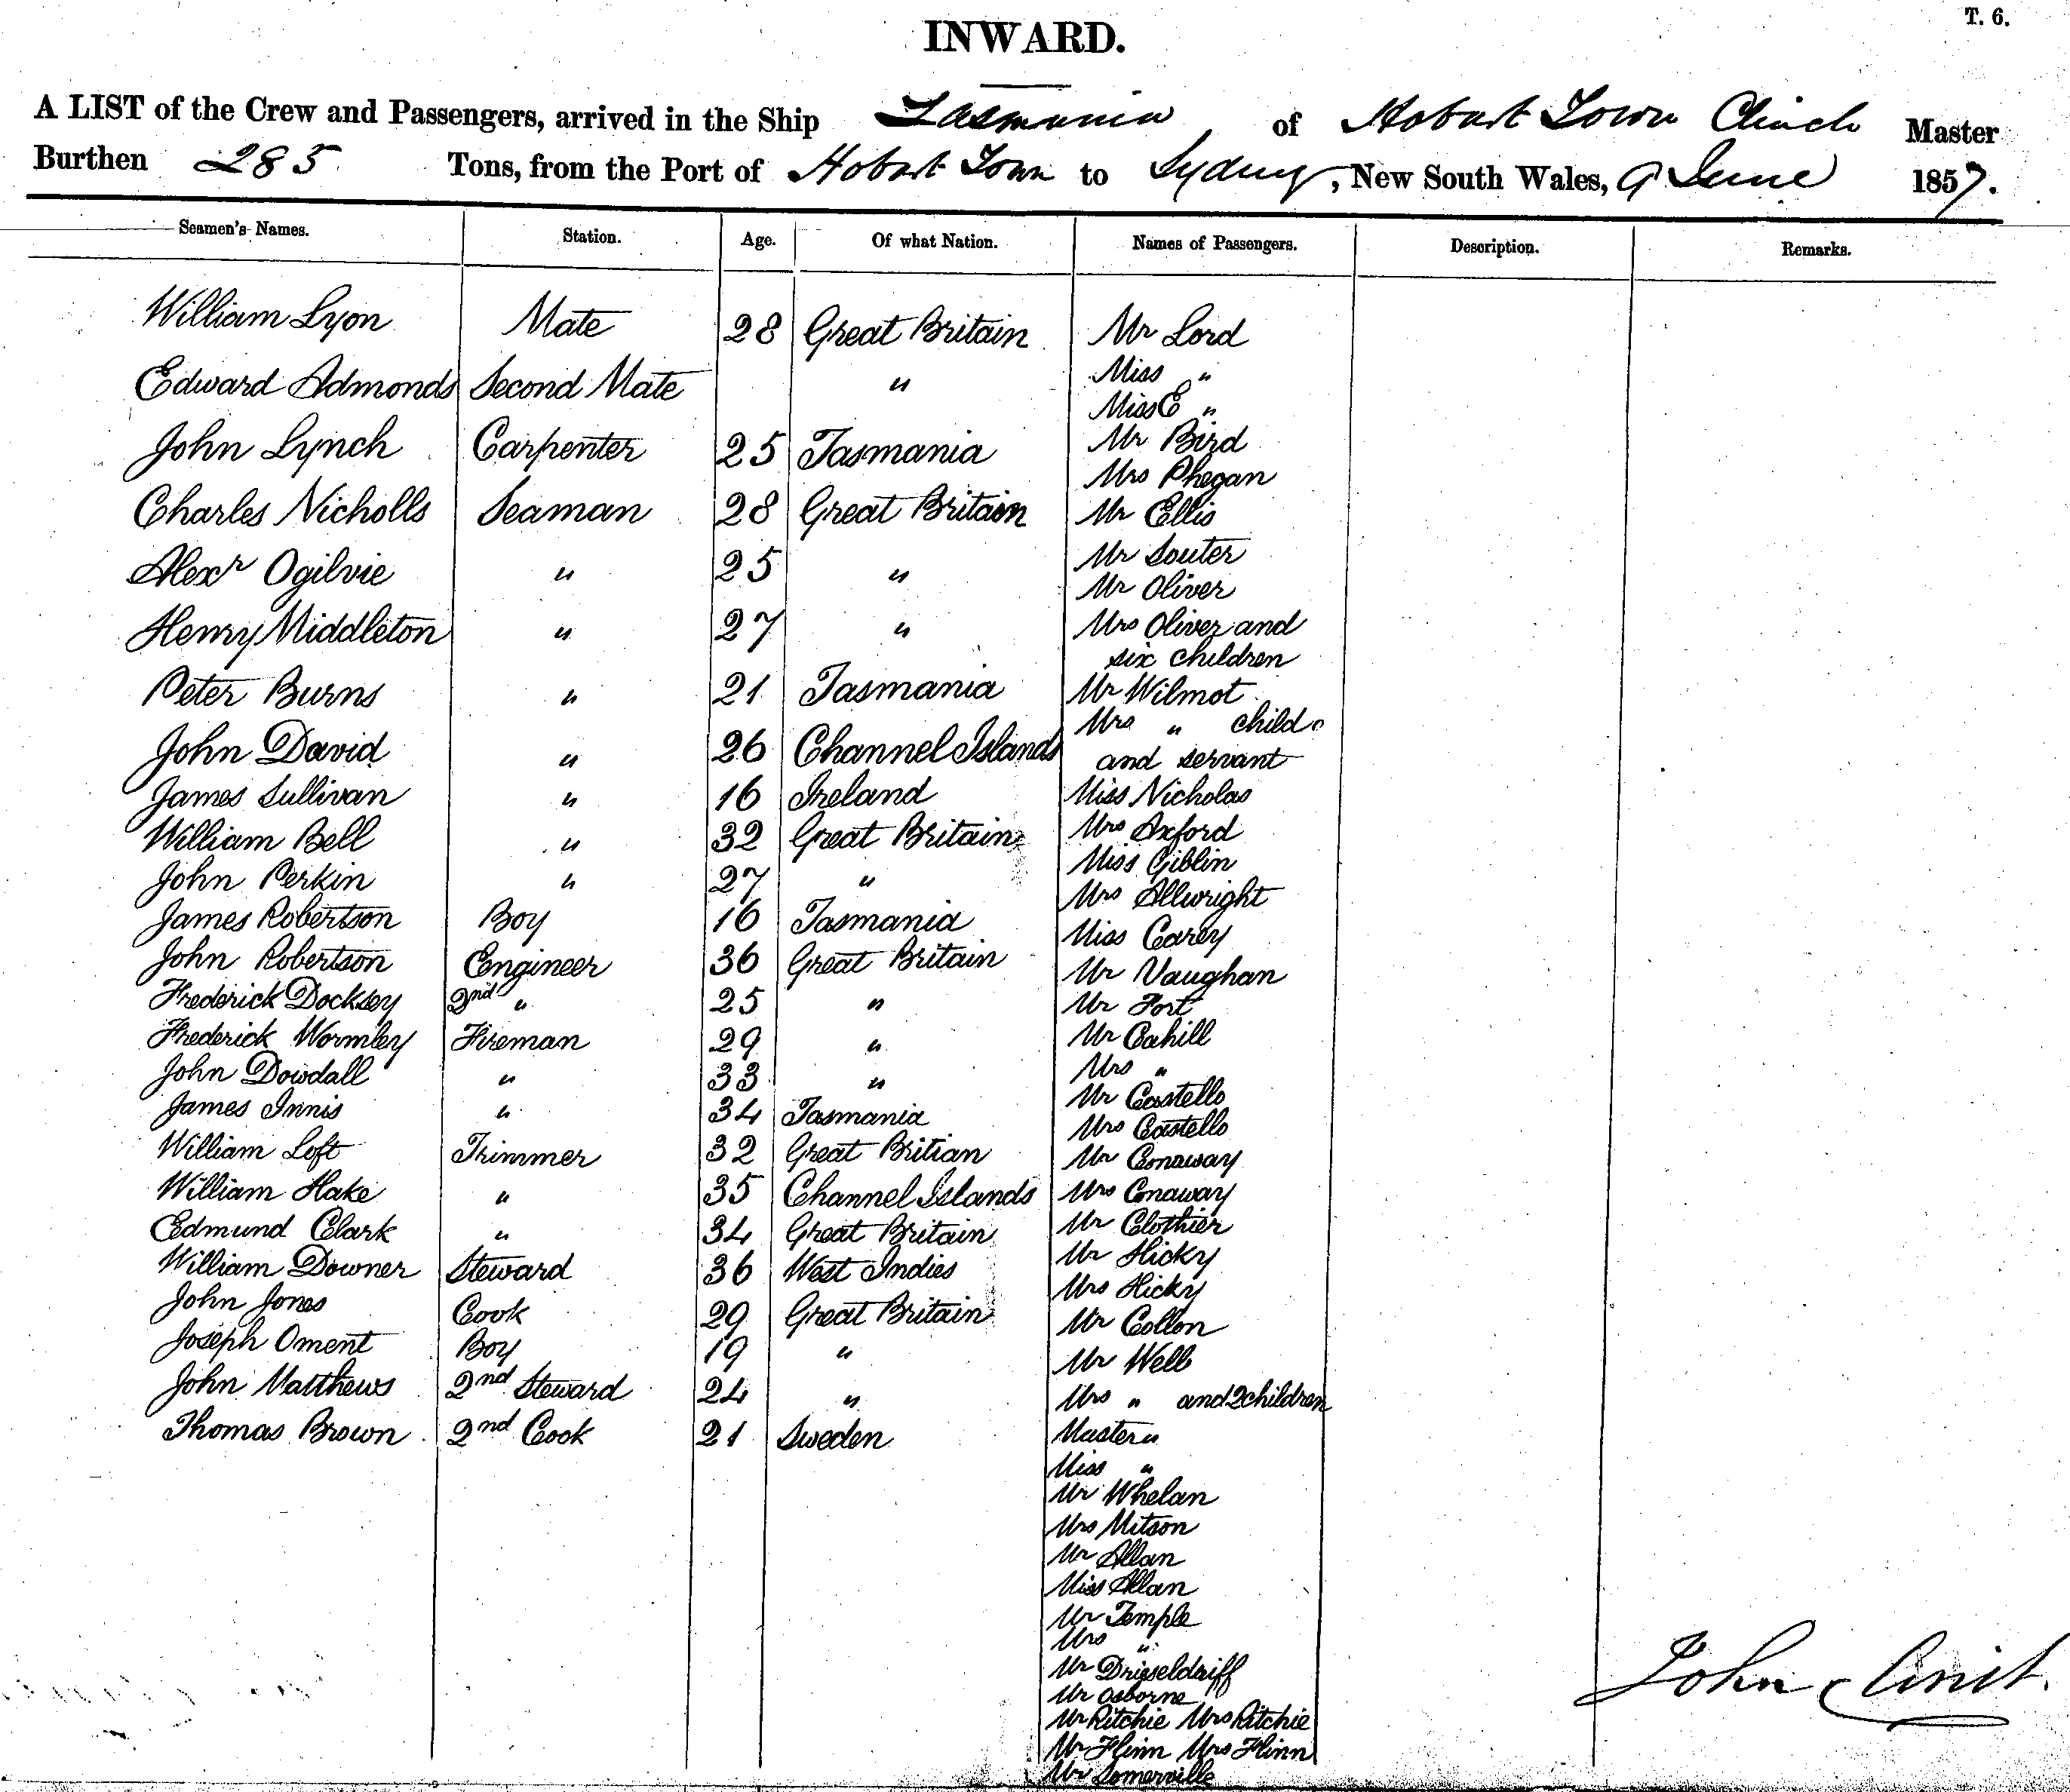 T. 6.
INWARD.
A LIST of the Crew and Passengers, arrived in the Ship Tasmania of Hobart Town Clinch Master
Burthen 285 Tons, from the Port of Hobart Town to Sydney, New South Wales, 9 June 1857.
Seamen's Names. Station. Age. Of what Nation. Names of Passengers. Description. Remarks.
William Lyon Mate 28 Great Britain Mr Lord
Miss "
Edward Admonds Second Mate "
Miss E "
John Lynch Carpenter 25 Tasmania Mr Bird
Mrs Phegan
Charles Nicholls Seaman 28 Great Britain Mr Ellis
Mr Souter
Alexr Ogilvie " 25 " Mr Oliver
Henry Middleton " 27 " Mrs Oliver and
six children
Peter Burns " 21 Tasmania Mr Wilmot
Mrs " child
John David " 26 Channel Islands and servant
James Sullivan " 16 Ireland Miss Nicholas
William Bell " 32 Great Britain Mrs Axford
Miss Giblin
John Perkin " 27 " Mrs Allwright
James Robertson Boy 16 Tasmania Miss Carey
John Robertson Engineer 36 Great Britain Mr Vaughan
Frederick Docksey 2nd " 25 " Mr Fort
Frederick Wormley Fireman 29 " Mr Cahill
John Dowdall " 33 " Mrs "
James Innis " 34 Tasmania Mr Castello
Mrs Castello
William Loft Trimmer 32 Great Britian Mr Conaway
William Hake " 35 Channel Islands Mrs Conaway
Edmund Clark " 34 Great Britain Mr Clothier
William Downer Steward 36 West Indies Mr Hicky
Mrs Hicky
John Jones Cook 29 Great Britain Mr Collon
Joseph Oment Boy 19 " Mr Webb
John Matthews 2nd Steward 24 " Mrs " and 2 children
Thomas Brown 2nd Cook 21 Sweden Master "
Miss "
Mr Whelan
Mrs Mitson
Mr Allan
Miss Allan
Mr Temple
Mrs "
Mr Drieseldriff
Mr Osborne
Mr Ritchie Mrs Ritchie
Mr Flinn Mrs Flinn
Mr Somerville
John Clinch